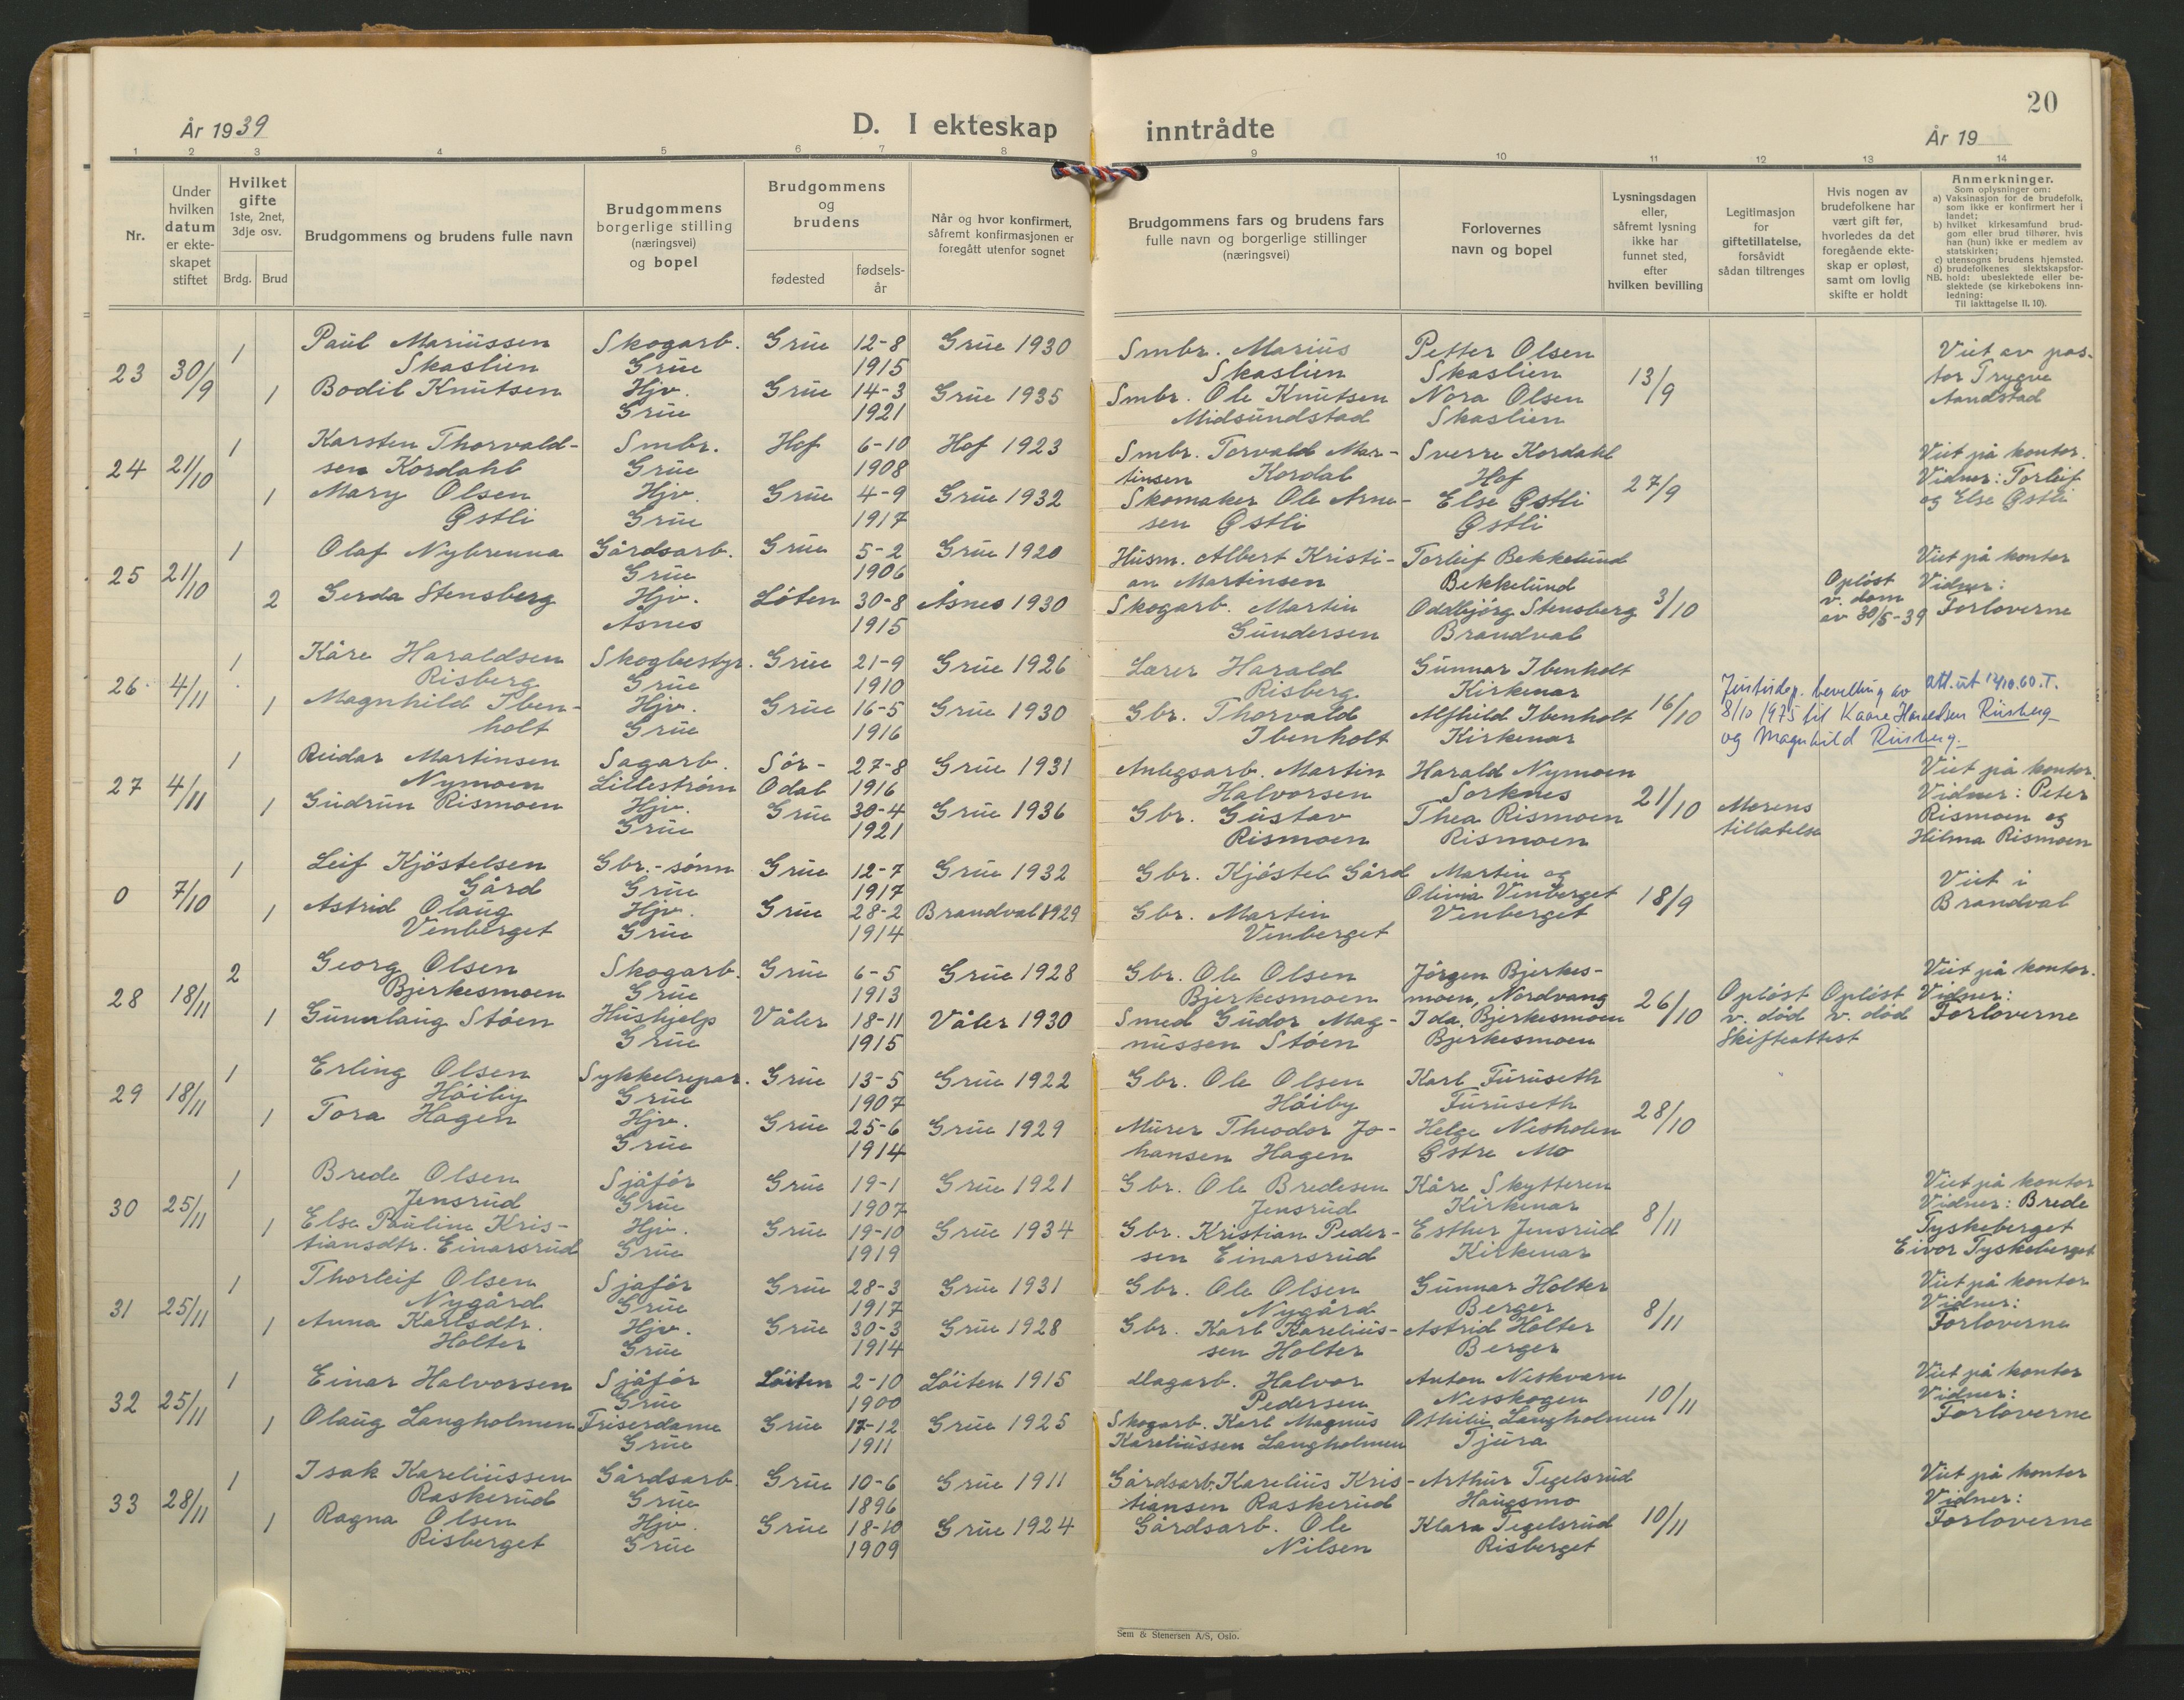 20
År 1939
D. I ekteskap inntrådte
År 19
1 2 3 4 5 6 7 8 9 10 11 12 13 14
Nr.
Under
hvilken
datum
er ekte-
skapet
stiftet
Hvilket
gifte
1ste, 2net,
3dje osv.
Brdg. Brud
Brudgommens og brudens fulle navn
Brudgommens
borgerlige stilling
(næringsvei)
og bopel
Brudgommens
og
brudens
fødested
fødsels-
år
Når og hvor konfirmert,
såfremt konfirmasjonen er
foregått utenfor sognet
Brudgommens fars og brudens fars
fulle navn og borgerlige stillinger
(næringsvei)
Forlovernes
navn og bopel
Lysningsdagen
eller,
såfremt lysning
ikke har
funnet sted,
efter
hvilken bevilling
Legitimasjon
for
giftetillatelse,
forsåvidt
sådan tiltrenges
Hvis nogen av
brudefolkene har
vært gift før,
hvorledes da det
foregående ekte-
skap er opløst,
samt om lovlig
skifte er holdt
Anmerkninger.
Som oplysninger om:
a) Vaksinasjon for de brudefolk,
som ikke er konfirmert her i
landet;
b) hvilket kirkesamfund brud-
gom eller brud tilhører, hvis
han (hun) ikke er medlem av
statskirken;
c) utensogns brudens hjemsted.
d) brudefolkenes slektskapsfor-
hold: ubeslektede eller be-
slektede (se kirkebokens inn-
NB. ledning:
Til iakttagelse II. 10).
23 30/9
1 Paul Mariussen Skogarb. Grue 12-8 Grue 1930 Smbr. Marius Petter Olsen Viet av pas-
Skaslien Grue 1915 Skaslien Skaslien 13/9 tor Trygve
1 Bodil Knutsen Hjv. Grue 14-3 Grue 1935 Smbr. Ole Knutsen Nora Olsen Aandstad
Grue 1921 Midsundstad Skaslien
24 21/10
1 Karsten Thorvald- Smbr. Hof 6-10 Hof 1923 Smbr. Torvald Mar- Sverre Kordahl Viet på kontor.
sen Kordahl Grue 1908 tinsen Kordal Hof 27/9 Vidner: Torleif
1 Mary Olsen Hjv. Grue 4-9 Grue 1932 Skomaker Ole Arne- Else Østli og Else Østli
Østli Grue 1917 sen Østli Østli
25 21/10
1 Olaf Nybrenna Gårdsarb. Grue 5-2 Grue 1920 Husm. Albert Kristi- Torleif Bekkelund Viet på kontor
Grue 1906 an Martinsen Bekkelund Opløst Vidner:
2 Gerda Stensberg Hjv. Löten 30-8 Åsnes 1930 Skogarb. Martin Oddbjörg Stensberg 3/10 v. dom Forloverne
Åsnes 1915 Gundersen Brandval av 30/5-39
26 4/11
1 Kåre Haraldsen Skogbestyr. Grue 21-9 Grue 1926 Lærer Harald Gunnar Ibenholt
Risberg Grue 1910 Risberg Kirkenær Justisdep. bevilling av att.ut 12/10.60.T.
1 Magnhild Iben- Hjv. Grue 16-5 Grue 1930 Gbr. Thorvald Alfhild Ibenholt 16/10 8/10 1975 til Kaare Haraldsen Riisberg
holt Grue 1916 Ibenholt Kirkenær og Magnhild Riisberg.
27 4/11
1 Reidar Martinsen Sagarb. Sör- 27-8 Grue 1931 Anlegsarb. Martin Harald Nymoen Viet på kontor.
Nymoen Lillestrøm Odal 1916 Halvorsen Sorknes Vidner: Peter
1 Gudrun Rismoen Hjv. Grue 30-4 Grue 1936 Gbr. Gustav Thea Rismoen 21/10 Morens Rismoen og
Grue 1921 Rismoen Rismoen tillatelse Hilma Rismoen
0 7/10
1 Leif Kjöstelsen Gbr.-sönn Grue 12-7 Grue 1932 Gbr. Kjöstel Gård Martin og Viet i
Gård Grue 1917 Olivia Venberget 18/9 Brandval
1 Astrid Olaug Hjv. Grue 28-2 Brandval 1929 Gbr. Martin Venberget
Venberget Grue 1914 Venberget
28 18/11
2 Georg Olsen Skogarb. Grue 6-5 Grue 1928 Gbr. Ole Olsen Jörgen Bjerkes- Viet på kontor.
Bjerkesmoen Grue 1913 Bjerkesmoen moen, Nordvang 26/10 Opløst Opløst Vidner:
1 Gunnlaug Stöen Hushjelp Våler 18-11 Våler 1930 Smed Gudor Mag- Ida Bjerkesmoen v. död v. död Forloverne
Grue 1915 nussen Stöen Bjerkesmoen Skifteattest
29 18/11
1 Erling Olsen Sykkelrepar. Grue 13-5 Grue 1922 Gbr. Ole Olsen Karl Furuseth
Höiby Grue 1907 Höiby Furuseth 28/10
1 Tora Hagen Hjv. Grue 25-6 Grue 1929 Murer Theodor Jo- Helge Nesholen
Grue 1914 hansen Hagen Østre Mo
30 25/11
1 Brede Olsen Sjåför Grue 19-1 Grue 1921 Gbr. Ole Bredesen Kåre Skytteren Viet på kontor
Jensrud Grue 1907 Jensrud Kirkenær Vidner: Brede
1 Else Pauline Kris- Hjv. Grue 19-10 Grue 1934 Gbr. Kristian Peder- Esther Jensrud 8/11 Tyskeberget
tiansdtr. Einarsrud Grue 1919 sen Einarsrud Kirkenær Eivor Tyskeberget
31 25/11
1 Thorleif Olsen Sjåför Grue 28-3 Grue 1931 Gbr. Ole Olsen Gunnar Holter Viet på kontor
Nygård Grue 1917 Nygård Berger 8/11 Vidner:
1 Anna Karlsdtr. Hjv. Grue 30-3 Grue 1928 Gbr. Karl Karelius- Astrid Holter Forloverne
Holter Grue 1914 sen Holter Berger
32 25/11
1 Einar Halvorsen Sjåför Löiten 2-10 Löiten 1915 dagarb. Halvor Anton Neskvern Viet på kontor
Grue 1900 Pedersen Nesskogen 10/11 Vidner:
1 Olaug Langholmen Friserdame Grue 17-12 Grue 1925 Skogarb. Karl Magnus Othilie Langholmen Forloverne
Grue 1911 Kareliussen Langholmen Tjura
33 28/11
1 Isak Kareliussen Gårdsarb. Grue 10-6 Grue 1911 Gårdsarb. Karelius Kris- Arthur Tegelsrud Viet på kontor
Raskerud Grue 1896 tiansen Raskerud Haugsmo Vidner:
1 Ragna Olsen Hjv. Grue 18-10 Grue 1924 Gårdsarb. Ole Klara Tegelsrud 10/11 Forloverne
Risberget Grue 1909 Nilsen Risberget
Sem & Stenersen A/S, Oslo.